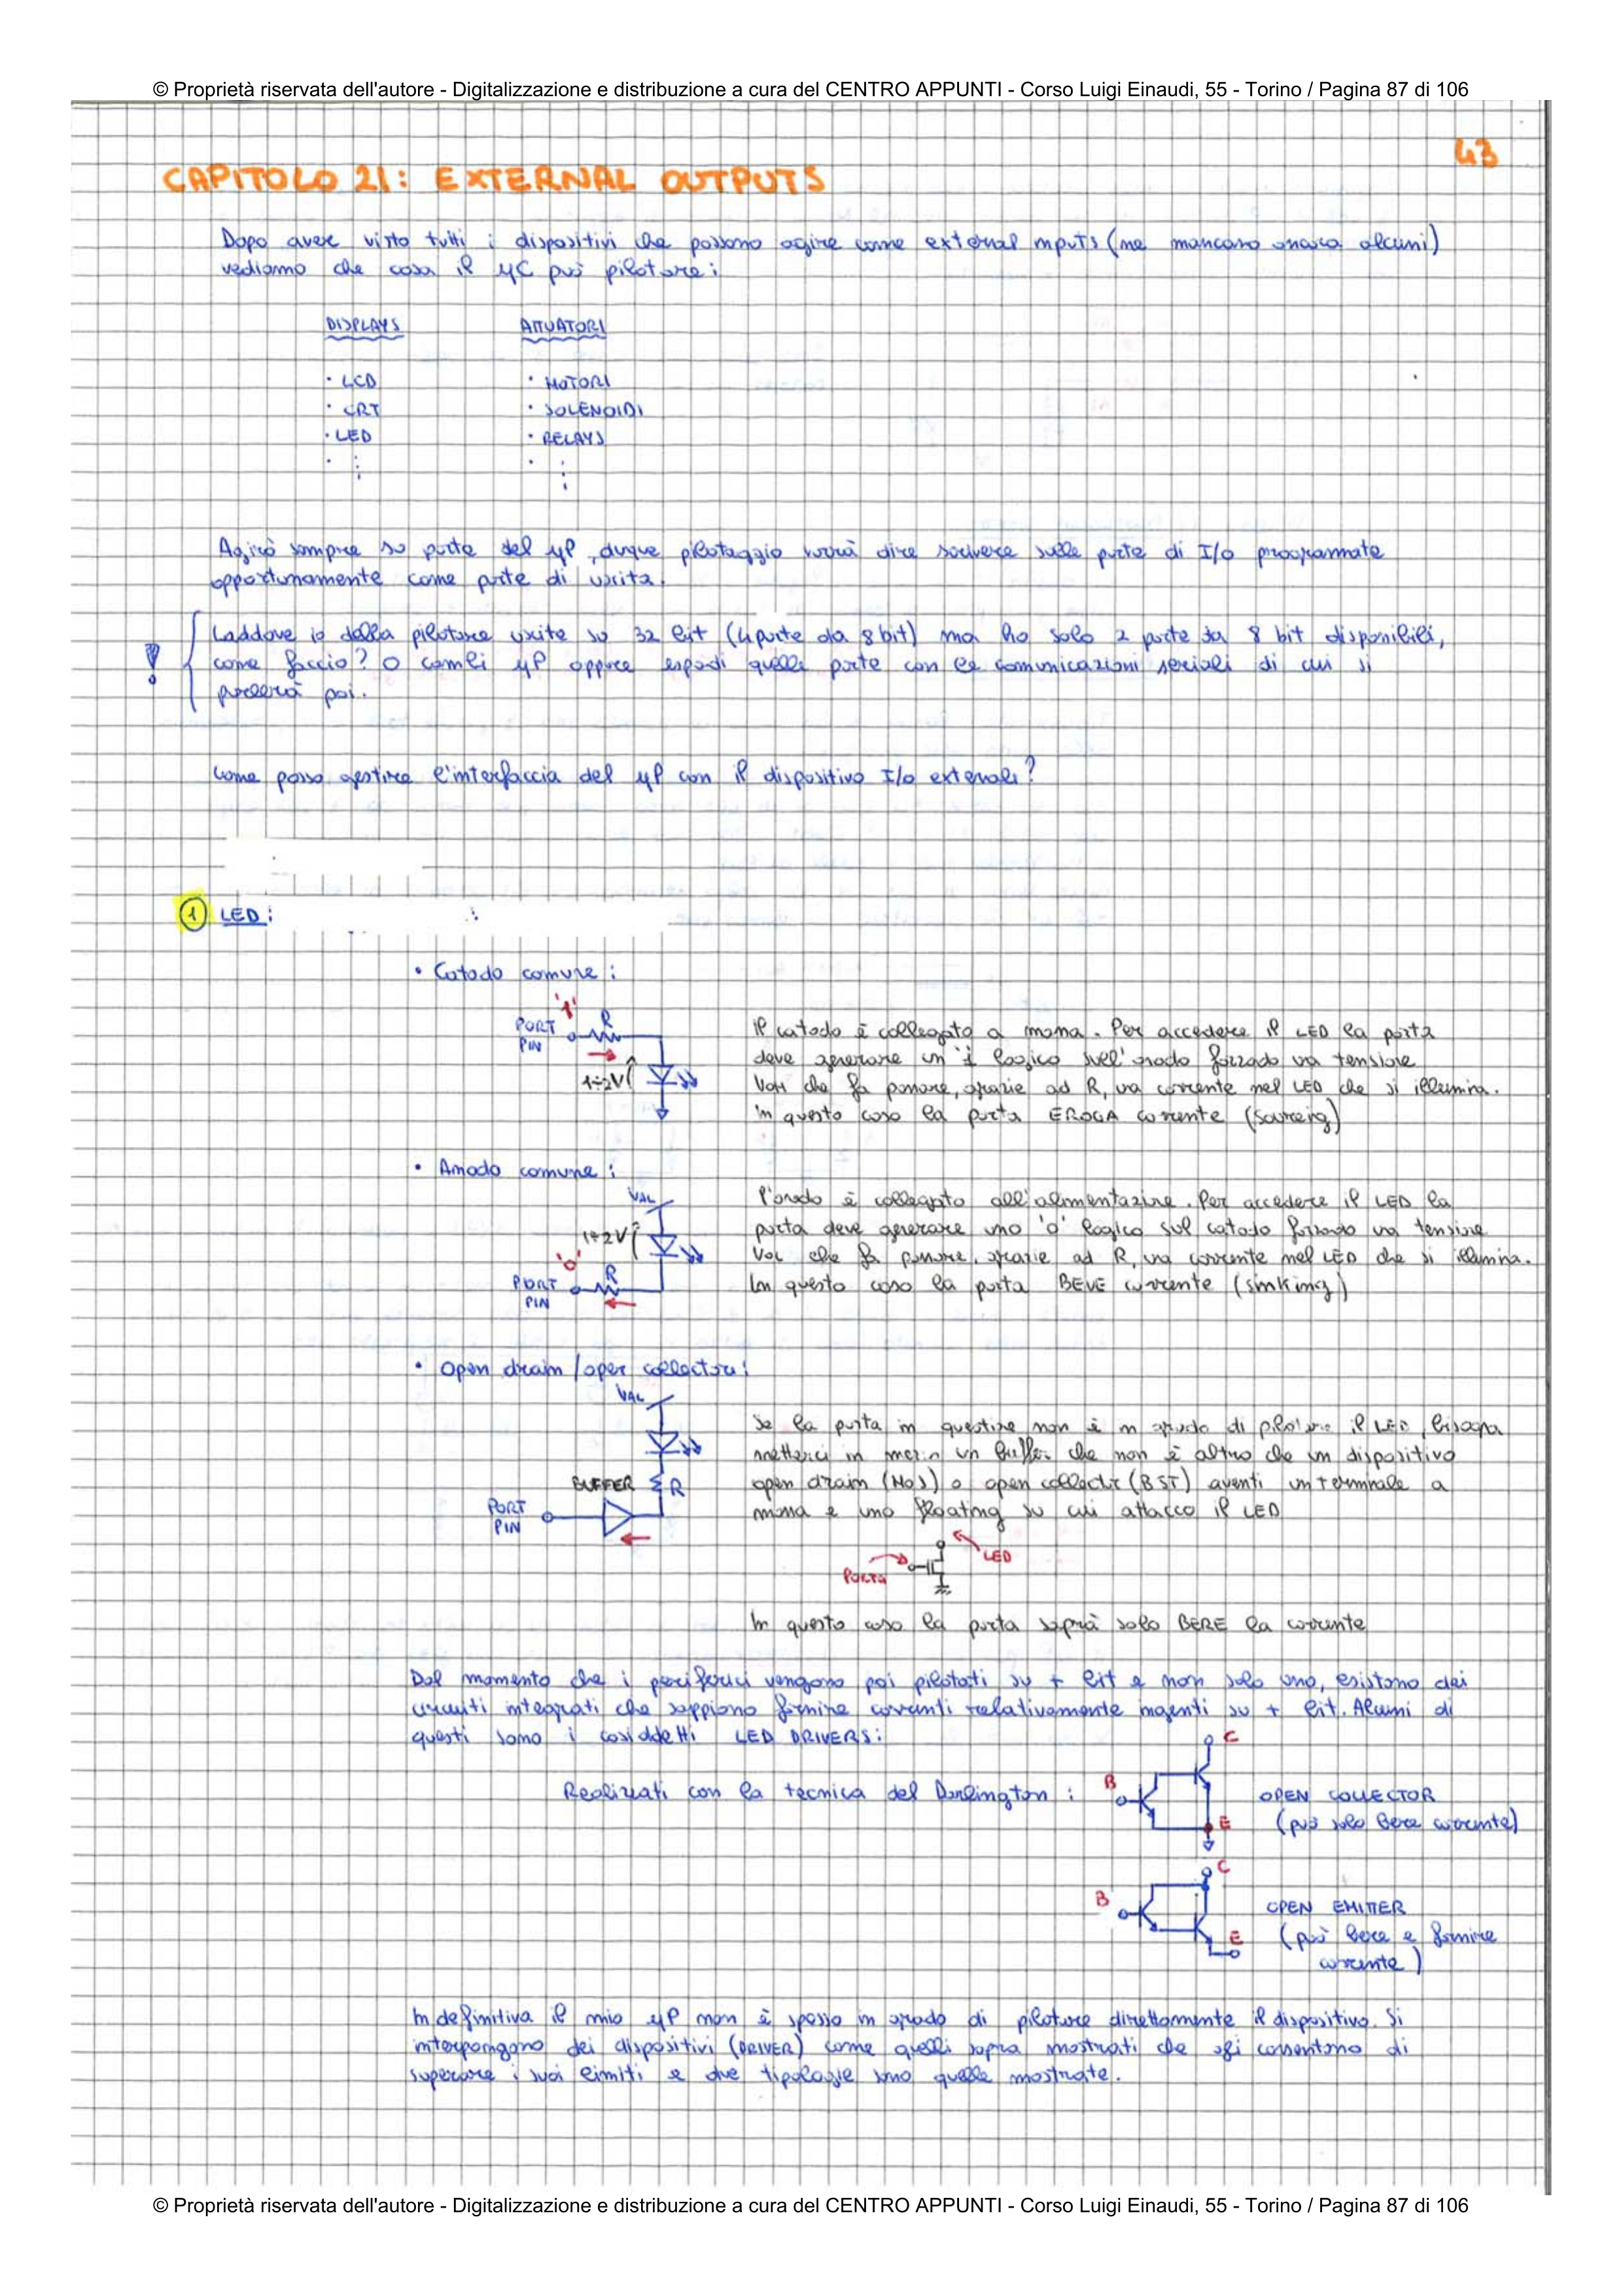 © Proprietà riservata dell'autore - Digitalizzazione e distribuzione a cura del CENTRO APPUNTI - Corso Luigi Einaudi, 55 - Torino / Pagina 87 di 106
43
CAPITOLO 21: EXTERNAL OUTPUTS
Dopo aver visto tutti i dispositivi che possono agire come external inputs (ne mancano ancora alcuni)
vediamo che cosa il μC può pilotare:
DISPLAYS ATTUATORI
· LCD · MOTORI
· CRT · SOLENOIDI
· LED · RELAYS
Agirò sempre su porte del μP, dunque pilotaggio vorrà dire scrivere sulle porte di I/O programmate
opportunamente come porte di uscita.
Laddove io debba pilotare uscite su 32 bit (4 porte da 8 bit) ma ho solo 2 porte da 8 bit disponibili,
come faccio? O cambi μP oppure espandi quelle porte con le comunicazioni seriali di cui si
parlerà poi.
Come posso gestire l'interfaccia del μP con il dispositivo I/O external?
1 LED:
• Catodo comune:
'1'
PORT PIN R
1÷2V
il catodo è collegato a massa. Per accedere il LED la porta
deve generare un '1' logico sull'anodo forzando una tensione
VOH che fa passare, grazie ad R, una corrente nel LED che si illumina.
In questo caso la porta EROGA corrente (sourcing)
• Anodo comune:
VAL
1÷2V
'0'
PORT PIN R
l'anodo è collegato all'alimentazione. Per accedere il LED la
porta deve generare uno '0' logico sul catodo forzando una tensione
VOL che fa passare, grazie ad R, una corrente nel LED che si illumina.
In questo caso la porta BEVE corrente (sinking)
• Open drain / open collector:
VAL
BUFFER R
PORT PIN
Se la porta in questione non è in grado di pilotare il LED, bisogna
metterci in mezzo un buffer che non è altro che un dispositivo
open drain (MOS) o open collector (BJT) aventi un terminale a
massa e uno floating su cui attacco il LED
LED
PORTA
In questo caso la porta saprà solo BERE la corrente
Dal momento che i periferici vengono poi pilotati su + bit e non solo uno, esistono dei
circuiti integrati che sappiano fornire correnti relativamente ingenti su + bit. Alcuni di
questi sono i cosiddetti LED DRIVERS:
C
Realizzati con la tecnica del Darlington: B OPEN COLLECTOR
E (può solo bere corrente)
C
B OPEN EMITTER
E (può bere e fornire
corrente)
In definitiva il mio μP non è spesso in grado di pilotare direttamente il dispositivo. Si
interpongono dei dispositivi (DRIVER) come quelli sopra mostrati che gli consentono di
superare i suoi limiti e due tipologie sono quelle mostrate.
© Proprietà riservata dell'autore - Digitalizzazione e distribuzione a cura del CENTRO APPUNTI - Corso Luigi Einaudi, 55 - Torino / Pagina 87 di 106